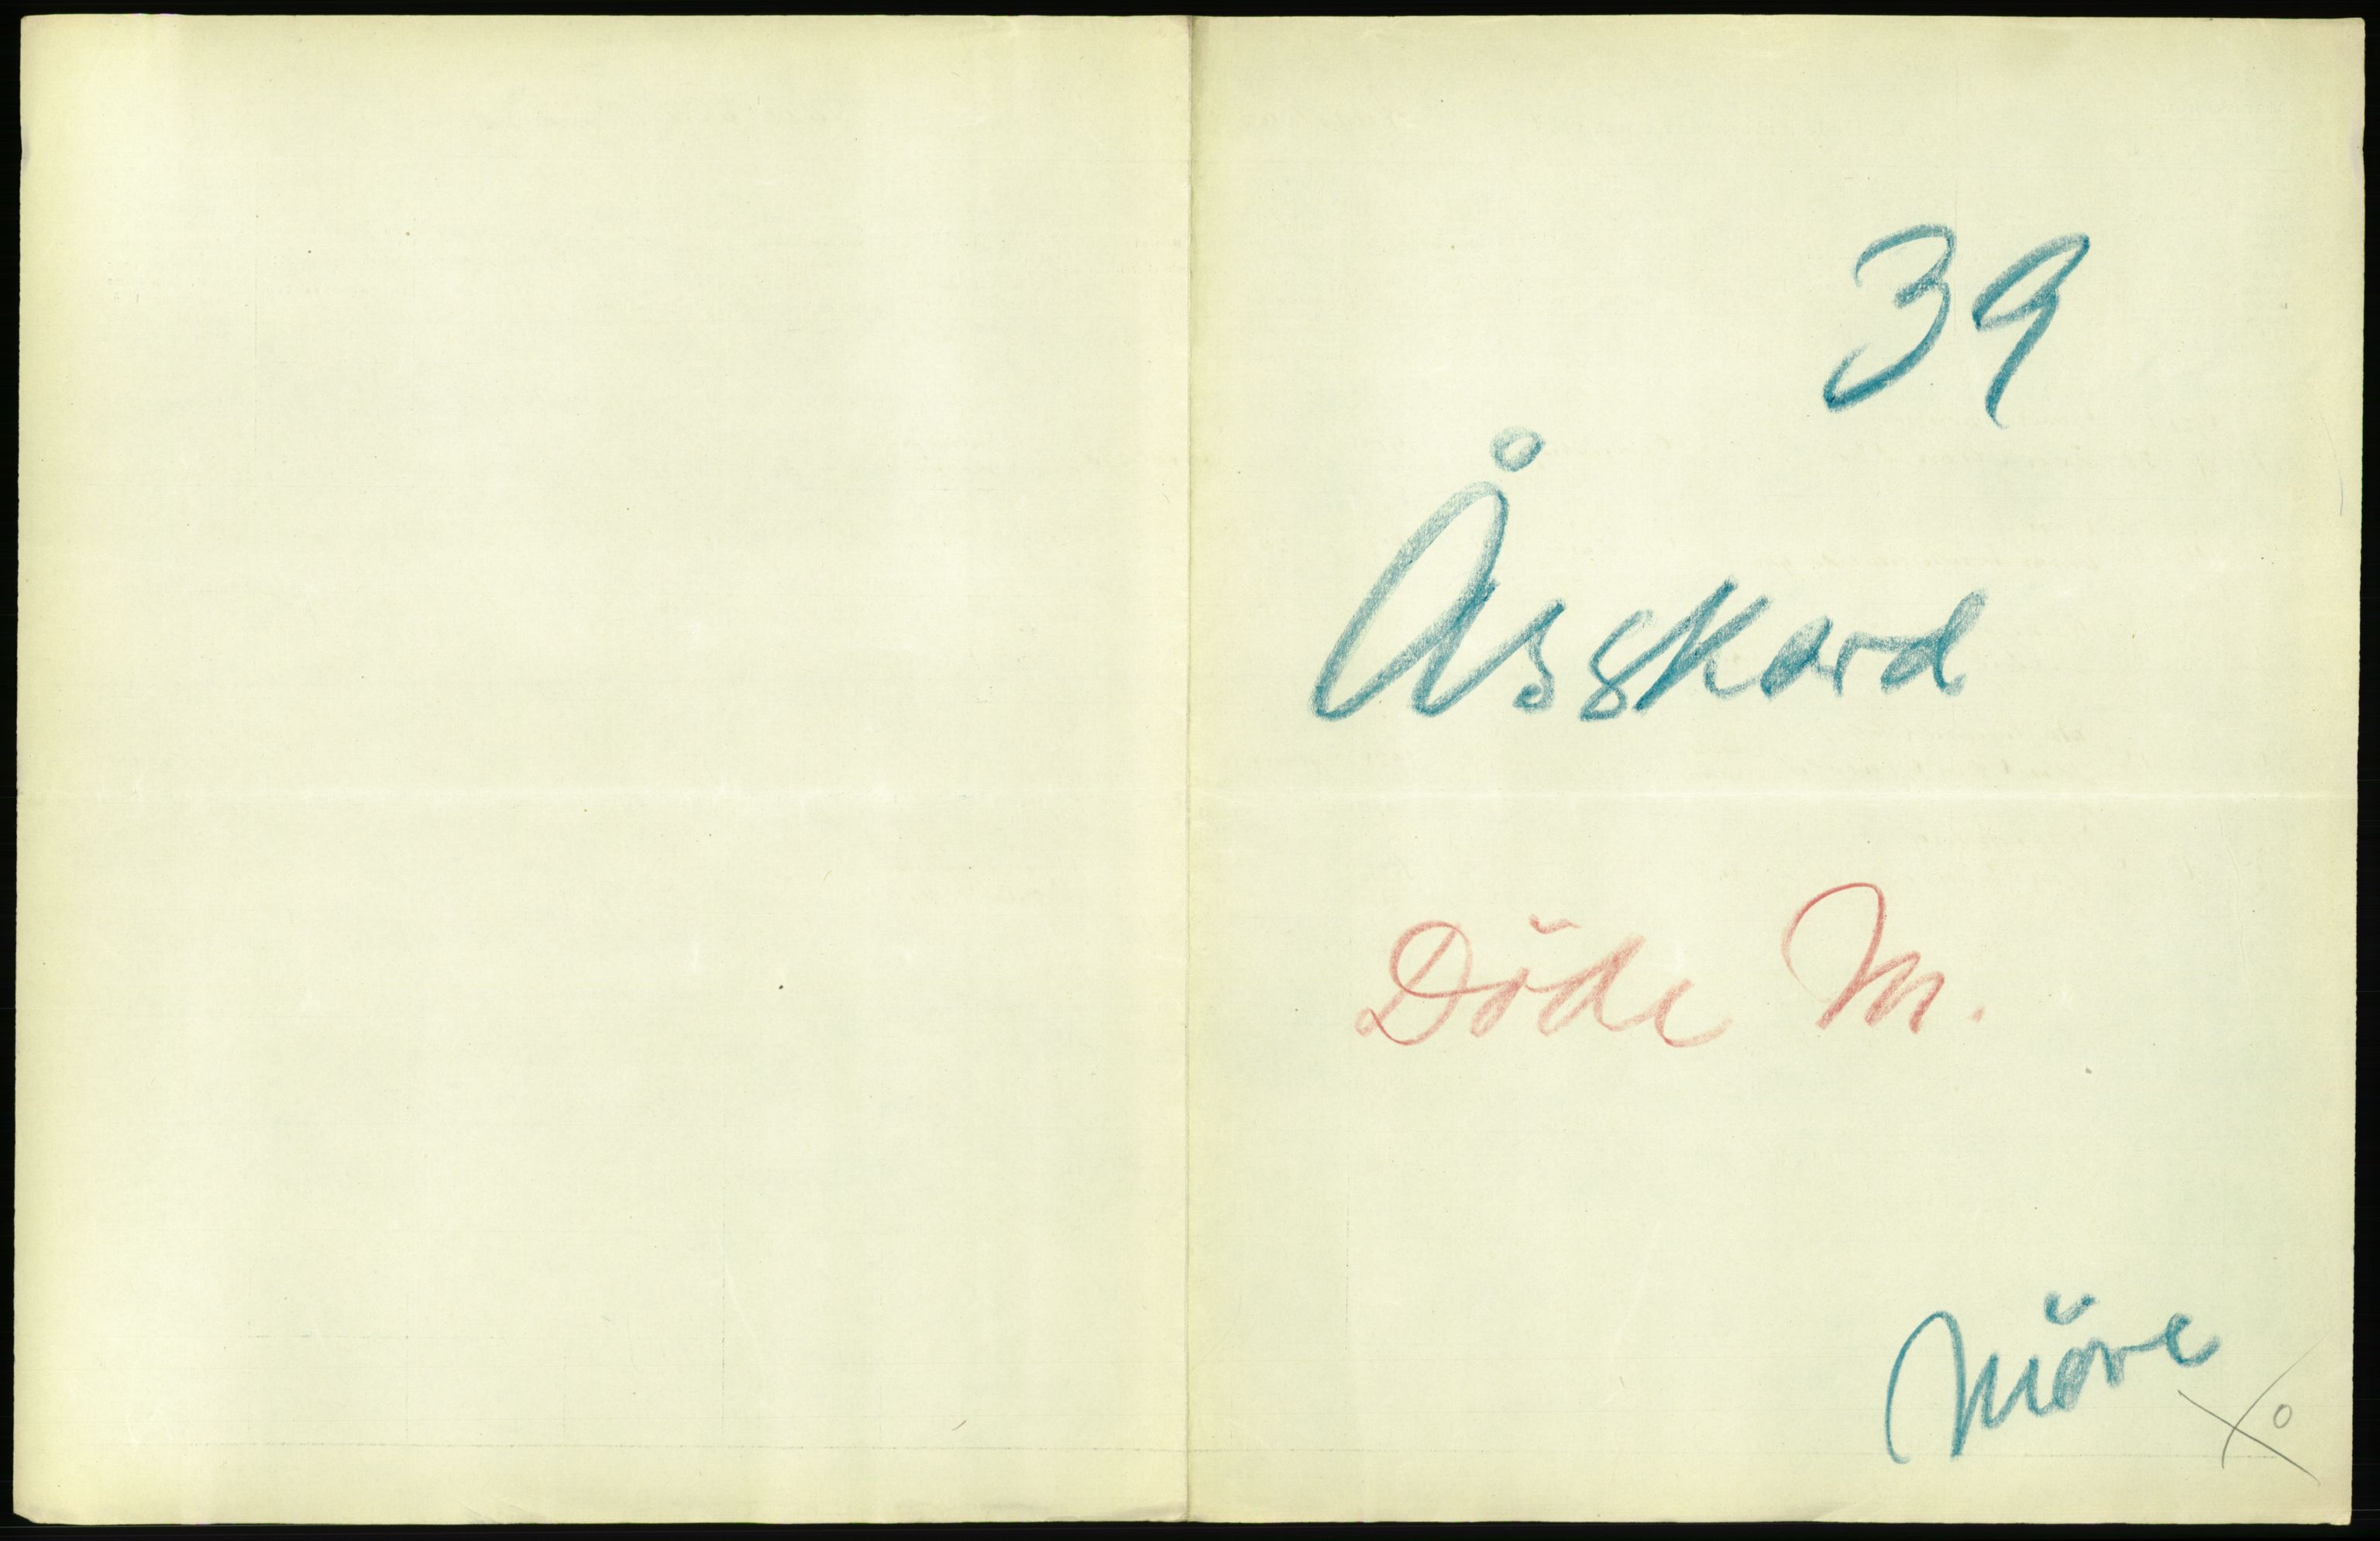 39
Åsskard
Döde M.
Möre